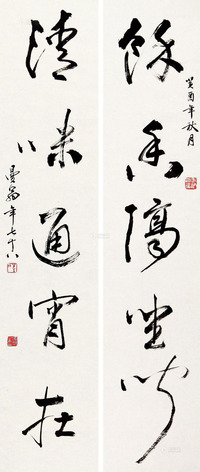 餘香隔坐聞
癸酉年秋月
清味通宵在
曼翁年七十八